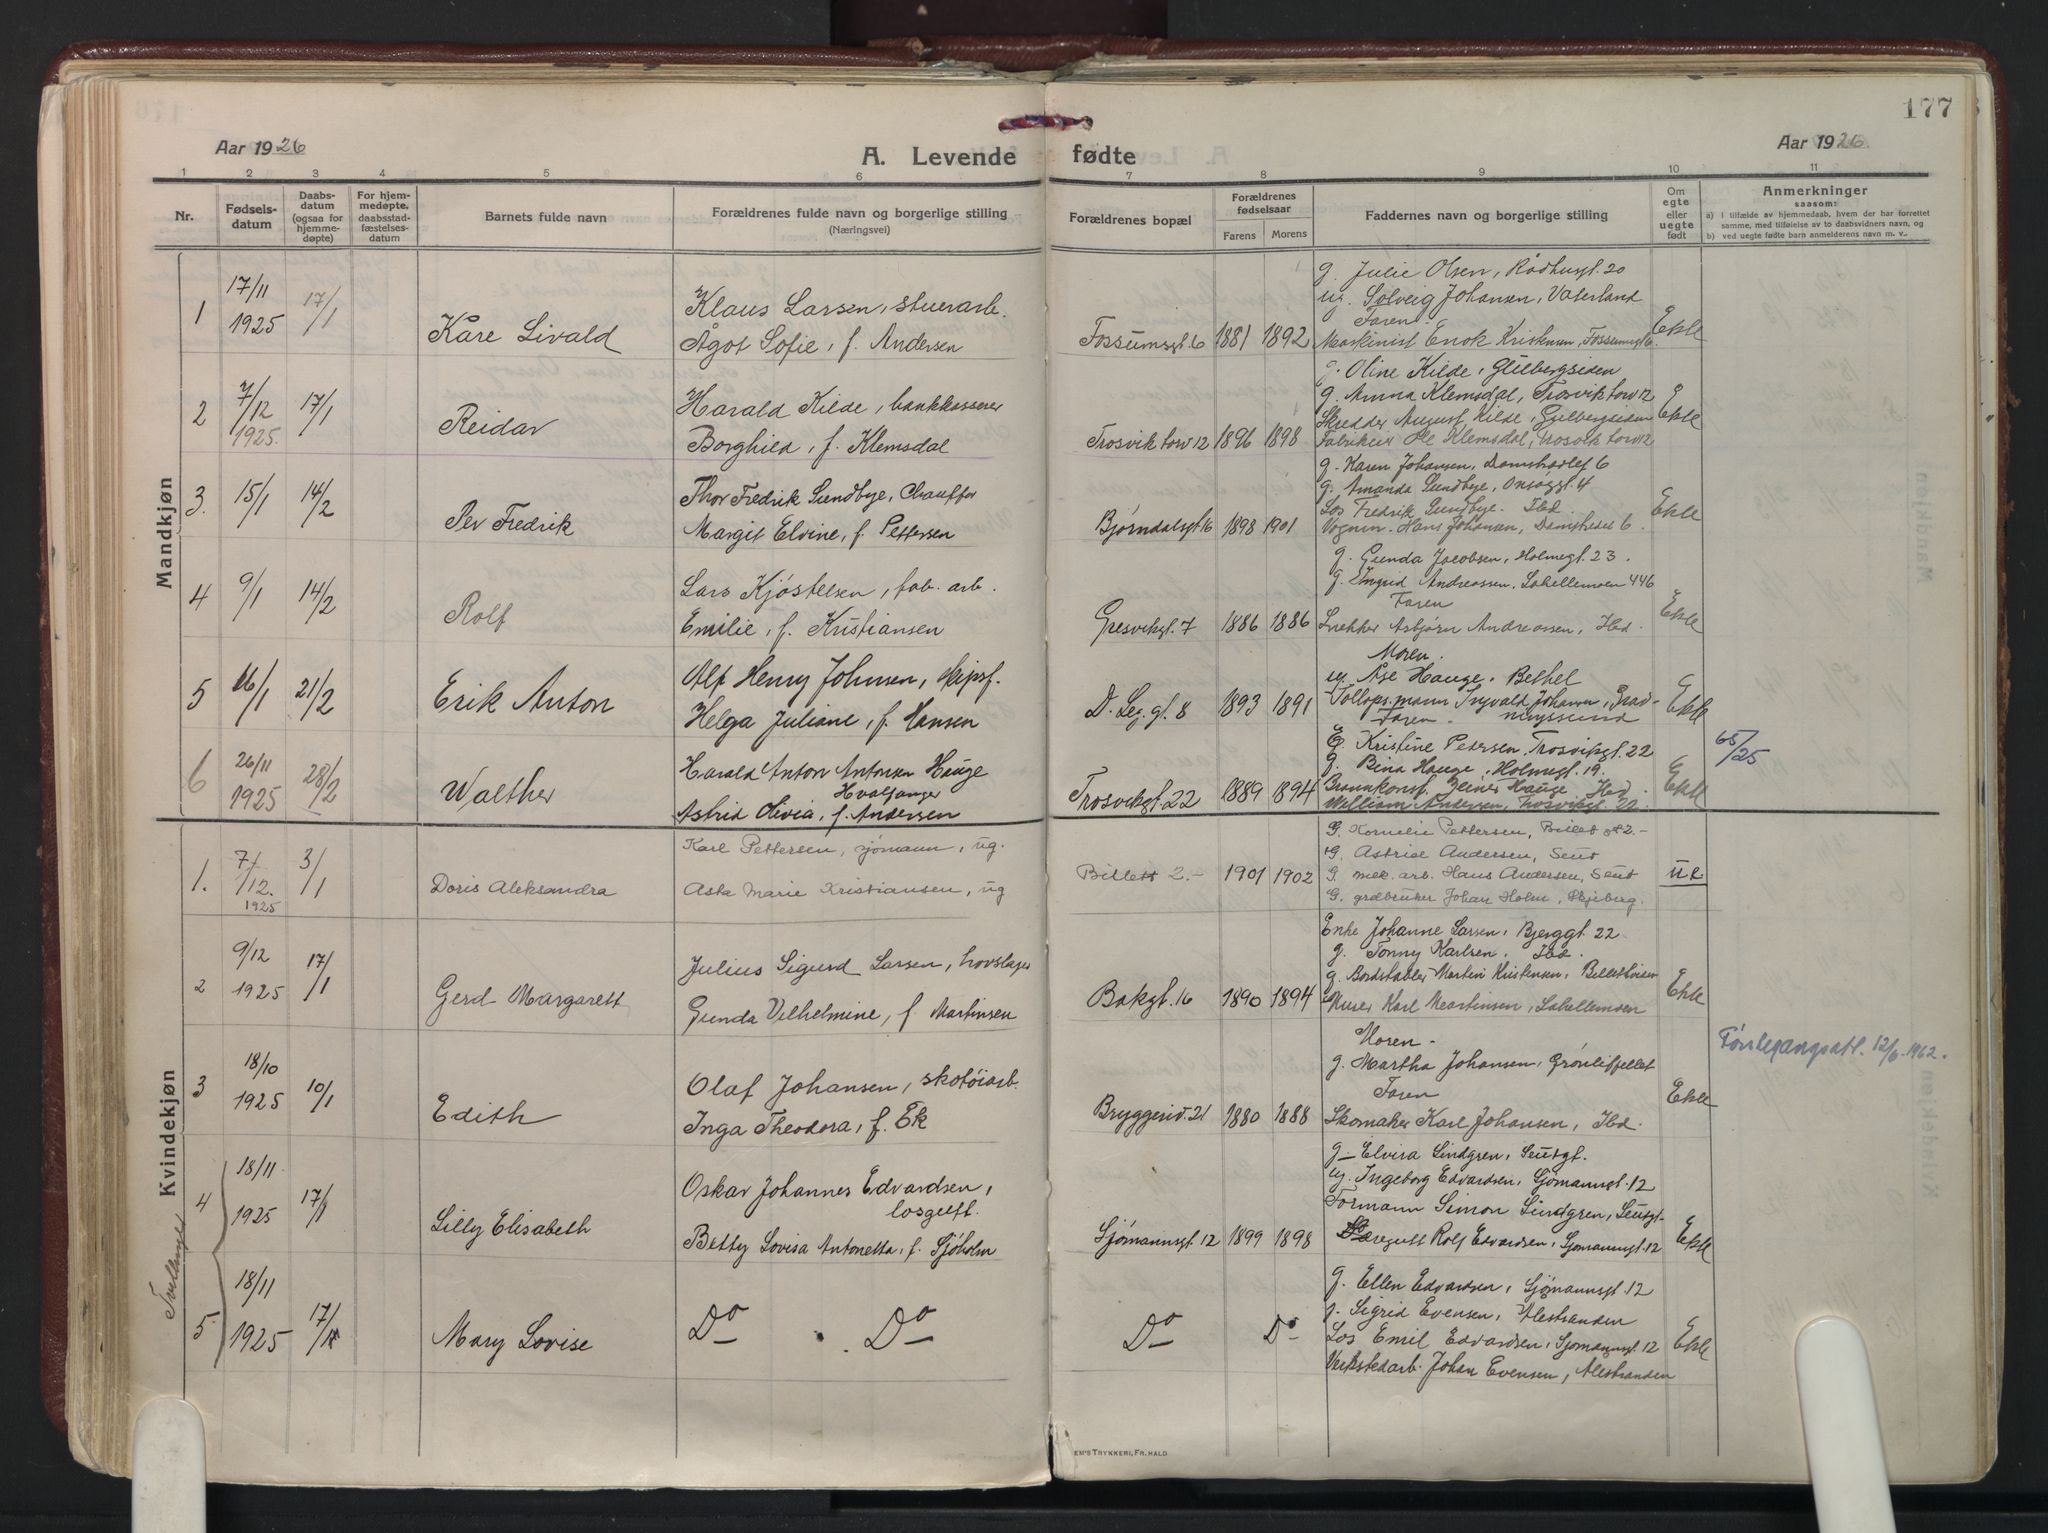 177
Aar 1926
A. Levende fødte
Aar 1926
1 2 3 4 5 6 7 8 9 10 11
Nr.
Fødsels-
datum
Daabs-
datum
(ogsaa for
hjemme-
døpte)
For hjem-
medøpte,
daabsstad-
fæstelses-
datum
Barnets fulde navn
Forældrenes fulde navn og borgerlige stilling
(Næringsvei)
Forældrenes bopæl
Forældrenes
fødselsaar
Farens Morens
Faddernes navn og borgerlige stilling
Om
egte
eller
uegte
født
Anmerkninger
saasom:
a) I tilfælde av hjemmedaab, hvem der har forrettet
samme, med tilføielse av to daabsvidners navn, og
b) ved uegte fødte barn anmelderens navn m. v.
Mandkjøn
1
17/11
1925
17/1
Kåre Sivald
Klaus Larsen, stuerarb.
Ågot Sofie, f. Andersen
Fossumsgt. 6
1881 1892
g. Julie Olsen, Rådhusgt. 20
ug. Solveig Johansen, Vaterland
Faren.
Maskinist Enok Kristensen, Fossumsgt 6.
Ekte
2
7/12
1925.
17/1
Reidar
Harald Kilde, bankkasserer
Borghild, f. Klemsdal
Trosvik torv 12
1896 1898
g. Oline Kilde, Glilbergsiden
g. Anna Klemsdal, Trosvik torv 12
Skredder August Kilde, Gjelbergsiden
Fabrikeier Ole Klemsdal, Trosvik torv 12
Ekte
3.
15/1
14/2
Per Fredrik
Thor Fredrik Sundbye, Chauffør
Margit Elvine, f. Pettersen
Bjørndalsgt 16
1898 1901
g. Karen Johansen, Damshodet 6
g. Amanda Sundbye, Onsøgt. 4
Los Fredrik Sundbye. Ibd.
Vognm. Hans Johansen, Damshodet 6.
Ekte
4
9/1
14/2
Rolf
Lars Kjøstelsen, fab. arb.
Emilie, f. Kristiansen
Gresvikgt. 7
1886 1886
g. Gunda Jacobsen, Holmegt. 23.
g. Ingrid Andreassen, Lahellemoen 446
Faren
Snekker Asbjørn Andreassen, Ibd.
Ekte
5
16/1
21/2
Erik Anton
Alf Henry Johnsen, skipsf.
Helga Juliane, f. Hansen
D. Leg. gt. 8
1893 1891
Moren.
ug. Åse Hauge. Bethel
Tollops. mann Ingvald Johansen, Grad-
Faren. ningssund
Ekte
6
26/11
1925
28/2
Walther
Harald Anton Antonsen Hauge
Hvalfanger
Astrid Olivia, f. Andersen
Trosvikgt. 22
1889 1894
E. Kristine Petersen, Trosvikgt. 22
g. Bina Hauge, Holmegt. 19.
Brannkonst. Hauge Ibd.
William Andersen, Trosvikgt. 22.
Ekte
65/25
Kvindekjøn
1.
7/12.
1925
3/1
Doris Aleksandra
Karl Pettersen, sjømann, ug.
Asta Marie Kristiansen, ug
Billett 2.-
1901 1902
G. Kornelie Pettersen, Billet st 2.-
G. Astrid Andersen, Seut
G. mek. arb. Hans Andersen, Seut
G. grdbruker Johan Holm, Skjeberg.
u e
2
9/12
1925
17/1
Gerd Margarett
Julius Sigurd Larsen, hovslager
Gunda Vilhelmine, f. Martinsen
Bakgt. 16
1890 1894
Enke Johanne Larsen, Bjerggt. 22
g. Tonny Karlsen. Ibd.
g. Bordstabler Martin Kristensen, Billettsvisen
Murer Karl Martinsen, Lahellemoen
Ekte
3
18/10
1925
10/1
Edith
Olaf Johansen, skotøiarb.
Inga Theodora, f. Ek
Bryggeriv. 21
1880 1888
Moren.
g. Martha Johansen, Grønlifjellet
Faren
Skomaker Karl Johansen, Ibd.
Ekte
Førstegangsatt. 12/6. 1962.
Tvillinger
4
18/11.
1925
17/1
Lilly Elisabeth
Oskar Johannes Edvardsen,
losgutt.
Betty Lovisa Antonetta, f. Sjøholm
Sjømannsgt. 12
1899 1898
g. Elvira Lindgren, Seutgt.
ug. Ingeborg Edvardsen, Sjømannsgt. 12
Formann Simon Lindgren, Seutgt.
Rolf Edvardsen, Sjømannsgt. 12
Ekte
5
18/11
1925
17/1
Mary Lovise
Do Do
Do
Do
g. Ellen Edvardsen, Sjømannsgt. 12
g. Sigrid Evensen, Alestranden
Los Emil Edvardsen, Sjømannsgt. 12
Verkstedarb. Johan Evensen, Alestranden
Ekte
EM'S TRYKKERI, FR.HALD